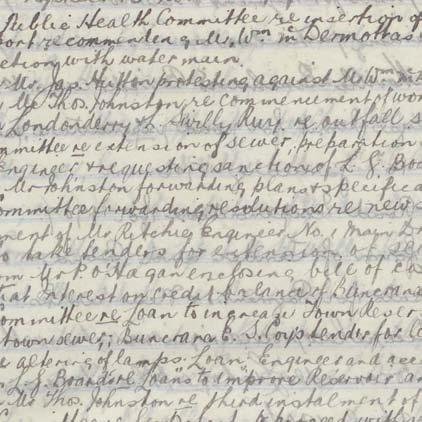 Public Health Committee re insertion of
port recommending Mr. Wm. McDermott as
ection with water main.
Mr. Jas. Hutton protesting against Mr Wm. Mc
Mr Thos. Johnston, re commencement of wor
Londonderry & L. Swilly Rwy. re outfall s
mmittee re extension of sewer, preparation
engineer & requesting sanction of L. G. Boa
Mr Johnston forwarding plans & specifica
Committee forwarding resolutions re new s
ment of Mr Ritchie, Engineer No. 1 Main Dr
to take tenders for extension of se
om Mr P. O'Hagan enclosing bill of co
that interest on credit balance of Buncrana
Committee re Loan to increase Town Reser
town sewer; Buncrana E. S. Coys tender for
e altering of lamps. Loan Engineer and
L. G. Board re loans to improve Reservoir an
Mr Thos. Johnston re third instalment of